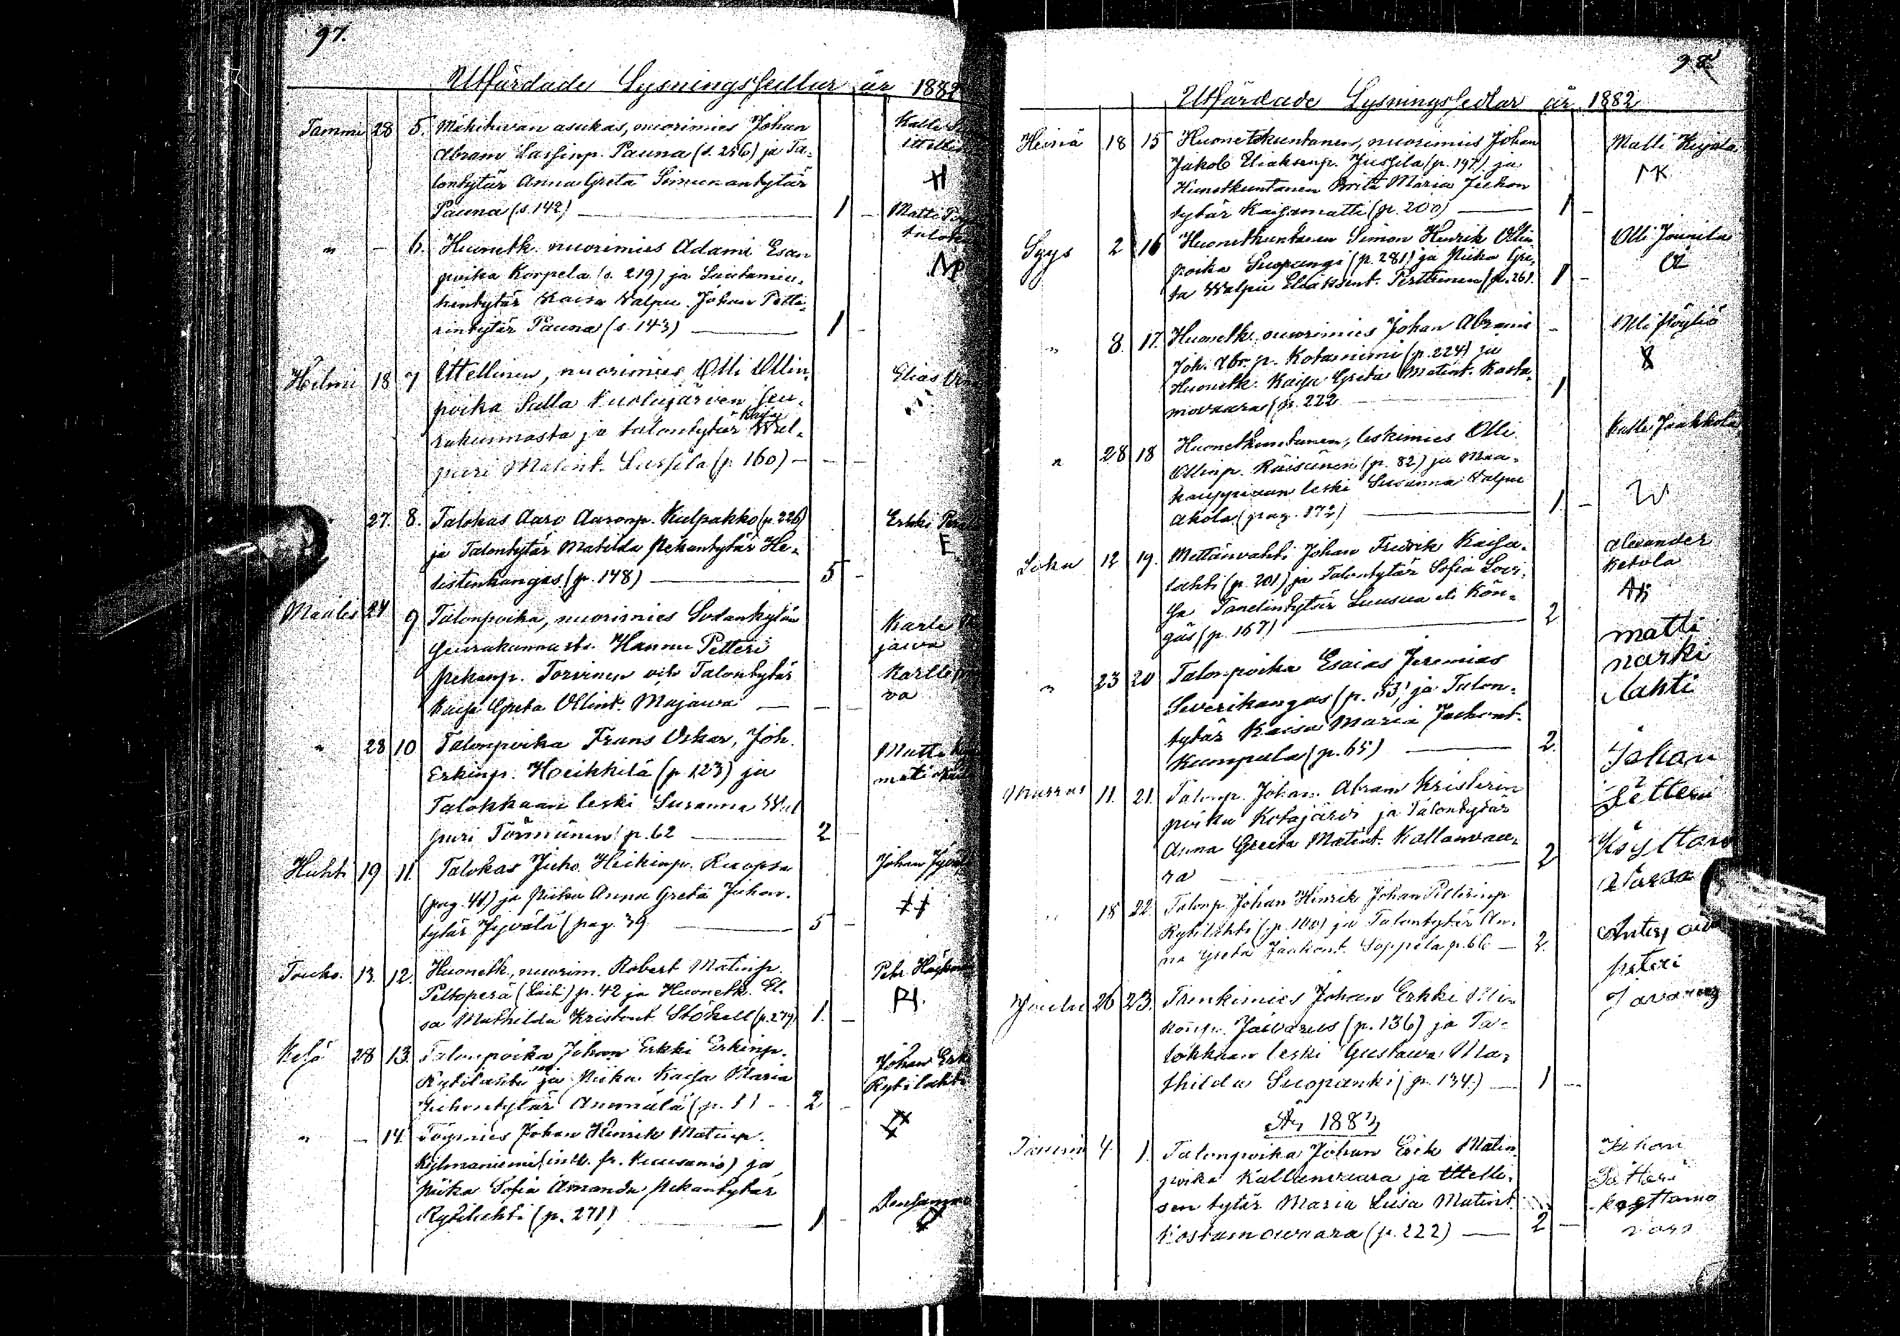 97.
Utfärdade Lysningssedlar år 1882
Tammi 28 5. Mäkituvan asukas, nuorimies Johan
Abram Lassinp. Pauna (s. 256) ja Ta-
lontytär Anna Greta Simunantytär
Pauna (s. 142) — 1 —
Kalle
H
Matti
" — 6. Huonetk. nuorimies Adami Esan
poika Korpela (s. 219) ja Lautamie-
hentytär Kaisa Walpu Johan Pette-
rintytär Pauna (s. 143) — 1 —
Helmi 18 7 Ittellinen, nuorimies Olli Ollin-
poika Salla Kuolajärven seu-
rakunnasta ja talontytär Kaisa Wal-
puri Matint. Lassila (p. 160) — — —
Elias
27. 8. Talokas Aaro Aaronp. Kulpakko (p. 226)
ja Talontytär Matilda Pekantytär He-
listenkangas (p. 148) — 5 —
Erkki
E
Maalis 24 9 Talonpoika, nuorimies Sodankylän
seurakunnasta Hannu Petteri
Pekanp. Torvinen och Talontytär
Kaisa Greta Ollint. Majawa — — —
Karle
jawa
Kalle
va
" 28 10 Talonpoika Frans Oskar, Joh.
Erkinp. Heikkilä (p. 123) ja
Talokkaan leski Susanna Wal
puri Törmänen p. 62 — 2 —
Matti
Huhti 19 11. Talokas Juho Heikinp. Kuopsa
(pag. 41) ja Piika Anna Greta Juhon-
tytär Jyvälä (pag. 39 — 5 —
Johan
Touko. 13. 12. Huonetk., nuorim. Robert Matinp.
Peltoperä (Laiti) p. 42 ja Huonetk. El-
sa Mathilda Kristont Stökell (p. 279) 1. —
Petr.
PH.
Kesä 28 13. Talonpoika Johan Erkki Erkinp.
Rytilahti ja Piika Kaisa Maria
Juhontytär Ammälä (p. 11 — 2 —
Johan Erk
Rytilahti
" — 14. Johan Henrik Matinp.
Kylmäniemi (intk. fr. Kuusamo) ja
Piika Sofia Amanda Pekantytär
Rytilahti (p. 271) — 1 —
98.
Utfärdade Lysningssedlar år 1882
Heinä 18 15 Huonetkuntanen, nuorimies Johan
Jakob Eliaksenp. Jussila (p. 197) ja
Huonetkuntanen Brita Maria Juhon
tytär Kaisamatti (p. 200) — 1 —
Matti Kujala
MK
Syys 2 16 Huonetkuntanen Simon Henrik Ollin
poika Suopangi (p. 281) ja Piika Gre-
ta Walpu Eliaksent. Perttunen (p. 261 1 —
Olli Jounila
" 8. 17. Huonetk. nuorimies Johan Abrami
Joh. Abr. p. Kotaniemi (p. 224) ja
Huonetk. Kaisa Greta Matint. Kosta-
movaara (p. 222 — 1
Olli
" 28 18 Huonetkuntanen, leskimies Olli
Ollinp. Räisänen (p. 82) ja Maa-
kauppiaan leski Susanna Walpu
Akola (pag. 172) — 1 —
Kalle Jaakkola
Loka 12 19. Mettänvahti Johan Fredrik Kaisa-
lahti (p. 201) ja Talontytär Sofia Lovi-
sa Tanelintytär Luusua eli Kön-
gäs (p. 167) — 2
Alexander
Ketola
AK
" 23 20 Talonpoika Esaias Jeremias
Severikangas (p. 53) ja Talon-
tytär Kaisa Maria Jaakont.
Kumpula (p. 65) — 2.
matti
narki
lahti
Marras 11. 21. Talonp. Johan Abram Kristerin
poika Kotajärvi ja Talontytär
Anna Greeta Matint. Kallanvaa-
ra — 2
Johan
Petteri
Köyttano
Vaara
" 18 22. Talonp. Johan Hinrik Johan Petterinp
Rytilahti (p. 100) ja Talontytär An-
na Greta Jaakont. Soppela p. 66 — 2.
Antti
peteri
Joulu 26 23. Trenkimies Johan Erkki Olli-
konp. Jaivarus (p. 136) ja Ta-
lokkaan leski Gustawa Ma-
thilda Suopanki (p. 134.) — 1 —
År 1883
Tammi 4. 1. Talonpoika Johan Erik Matin
poika Kallanvaara ja Ittelli-
sen tytär Maria Liisa Matint
Kostamowaara (p. 222) — 2 —
Johan
Petteri